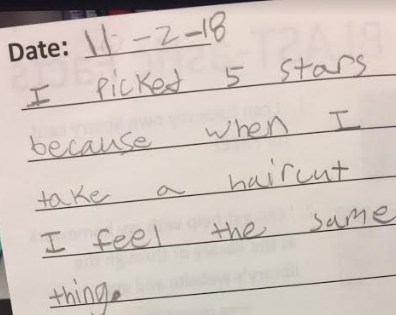 Date: 11-2-18
I picked 5 stars
because when I
take a haircut
I feel the same
thing.